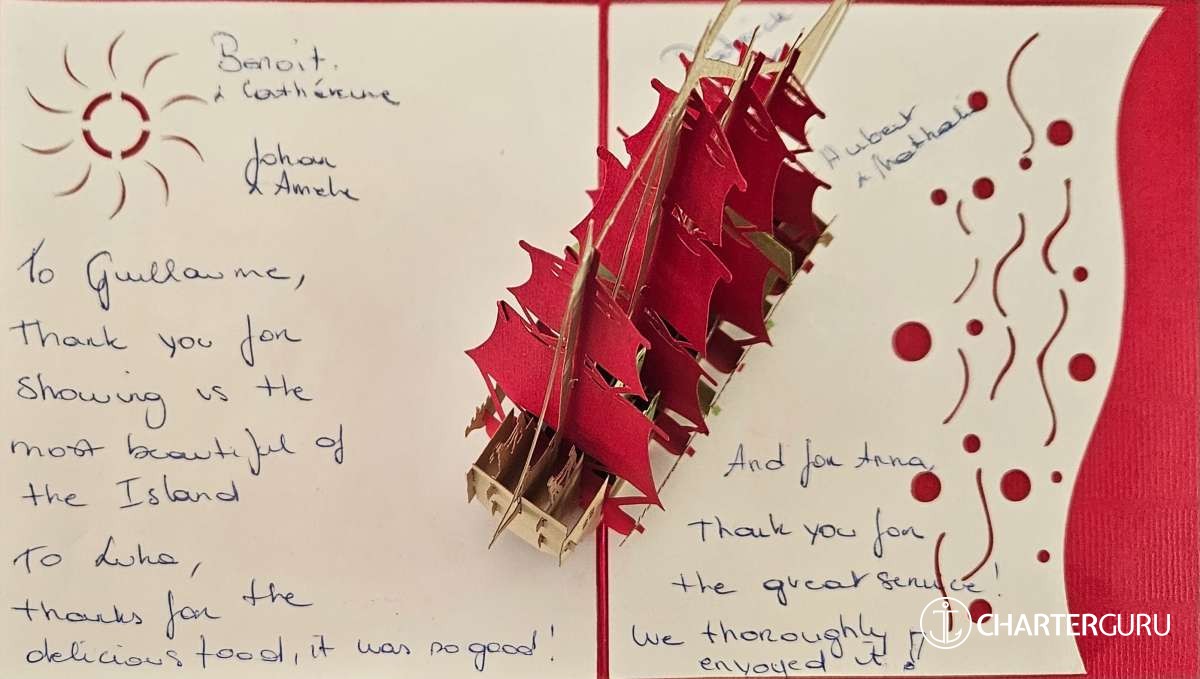 Benoit.
& Cathérine
Johan
& Amelie
To Guillaume,
Thank you for
showing us the
most beautiful of
the Island
To Luka,
thanks for the
delicious food, it was so good!
Hubert
& Nathalie
And for Anna,
Thank you for
the great service!
We thoroughly
enyoyed it!
CHARTERGURU